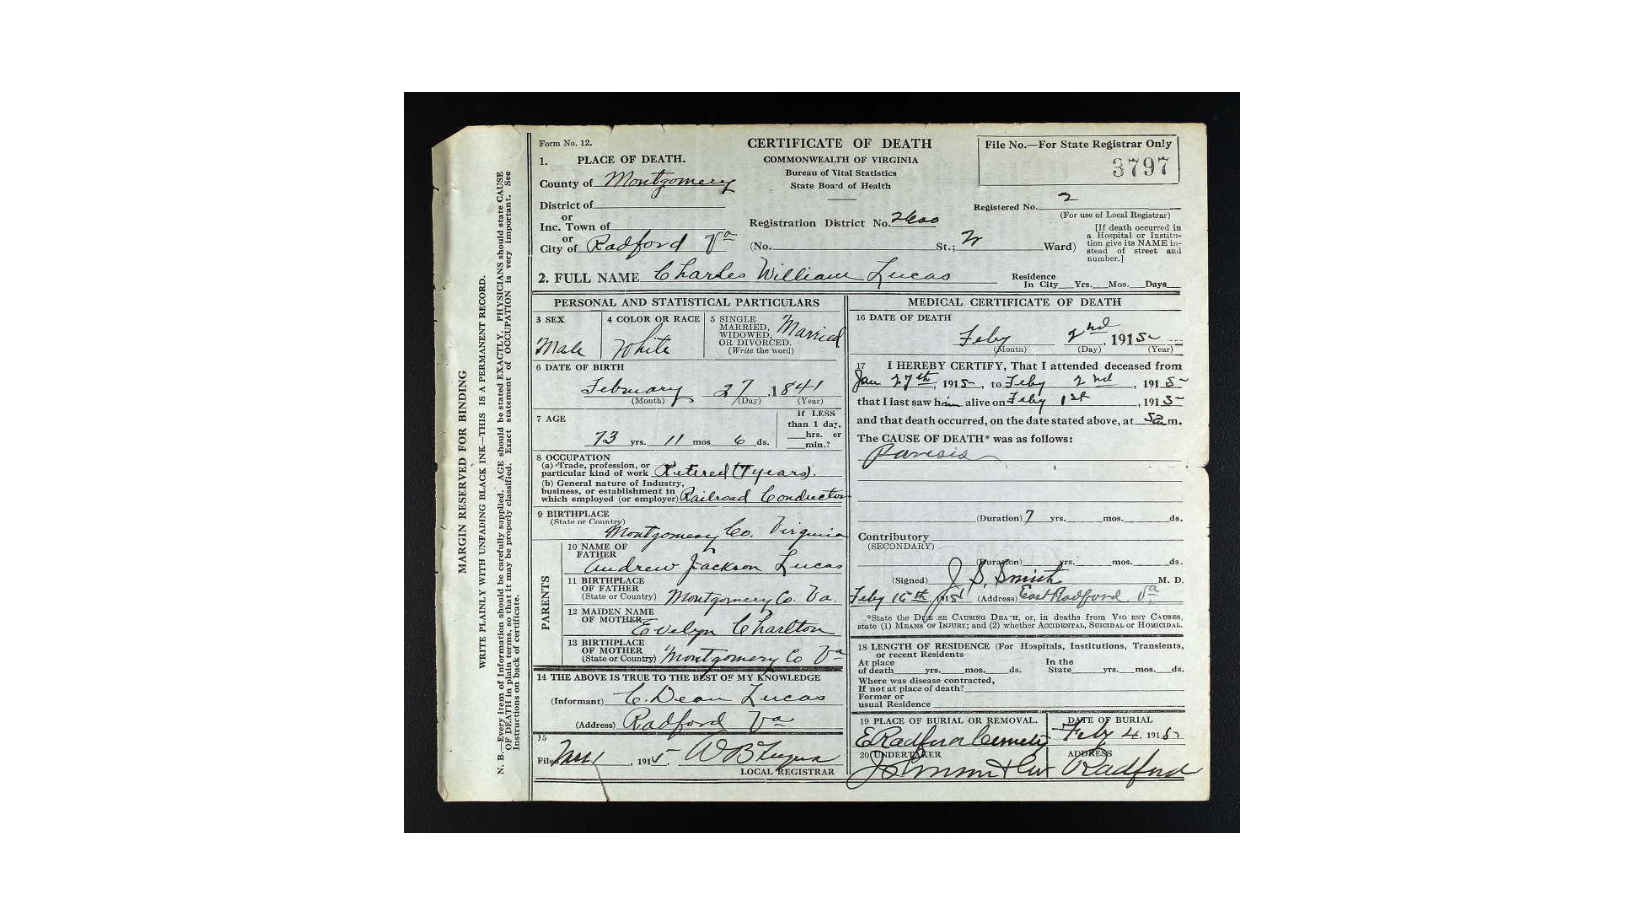 MARGIN RESERVED FOR BINDING
WRITE PLAINLY WITH UNFADING BLACK INK—THIS IS A PERMANENT RECORD.
N. B.—Every item of Information should be carefully supplied. AGE should be stated EXACTLY. PHYSICIANS should state CAUSE
OF DEATH in plain terms, so that it may be properly classified. Exact statement of OCCUPATION is very important. See
instructions on back of certificate.
Form No. 12.
CERTIFICATE OF DEATH
COMMONWEALTH OF VIRGINIA
Bureau of Vital Statistics
State Board of Health
File No.—For State Registrar Only
3797
1. PLACE OF DEATH.
County of Montgomery
District of
or
Inc. Town of
or
City of Radford Va
Registration District No. 2600
(No. St.; W Ward)
Registered No. 2
(For use of Local Registrar)
[If death occurred in
a Hospital or Institu-
tion give its NAME in-
stead of street and
number.]
2. FULL NAME Charles William Lucas
Residence
In City Yrs. Mos. Days
PERSONAL AND STATISTICAL PARTICULARS
3 SEX
Male
4 COLOR OR RACE
White
5 SINGLE
MARRIED,
WIDOWED,
OR DIVORCED.
(Write the word)
Married
6 DATE OF BIRTH
February 27 , 1841
(Month) (Day) (Year)
7 AGE
73 yrs. 11 mos 6 ds.
If LESS
than 1 day,
hrs. or
min.?
8 OCCUPATION
(a) Trade, profession, or
particular kind of work Retired (7 years).
(b) General nature of Industry,
business, or establishment in
which employed (or employer) Railroad Conductor
9 BIRTHPLACE
(State or Country)
Montgomery Co. Virginia
PARENTS
10 NAME OF
FATHER
Andrew Jackson Lucas
11 BIRTHPLACE
OF FATHER
(State or Country) Montgomery Co. Va.
12 MAIDEN NAME
OF MOTHER
Evelyn Charlton
13 BIRTHPLACE
OF MOTHER
(State or Country) Montgomery Co Va
14 THE ABOVE IS TRUE TO THE BEST OF MY KNOWLEDGE
(Informant) C. Dean Lucas
(Address) Radford Va
15
Filed 1 , 1915
LOCAL REGISTRAR
MEDICAL CERTIFICATE OF DEATH
16 DATE OF DEATH
Feby 2nd , 1915
(Month) (Day) (Year)
17 I HEREBY CERTIFY, That I attended deceased from
Jan 27th , 1915, to Feby 2nd , 1915
that I last saw him alive on Feby 1st , 1915
and that death occurred, on the date stated above, at 5 a m.
The CAUSE OF DEATH* was as follows:
Paresis
(Duration) 7 yrs. mos. ds.
Contributory
(SECONDARY)
(Duration) yrs. mos. ds.
(Signed) J. S. Smith M. D.
Feby 15th 1915 (Address) East Radford Va
*State the DISEASE CAUSING DEATH, or, in deaths from VIOLENT CAUSES,
state (1) MEANS OF INJURY; and (2) whether ACCIDENTAL, SUICIDAL OF HOMICIDAL.
18 LENGTH OF RESIDENCE (For Hospitals, Institutions, Transients,
or recent Residents
At place
of death yrs. mos. ds.
In the
State yrs. mos. ds.
Where was disease contracted,
If not at place of death?
Former or
usual Residence
19 PLACE OF BURIAL OR REMOVAL.
E Radford Cemetery
DATE OF BURIAL
Feby 4, 1915
20 UNDERTAKER
ADDRESS
Radford